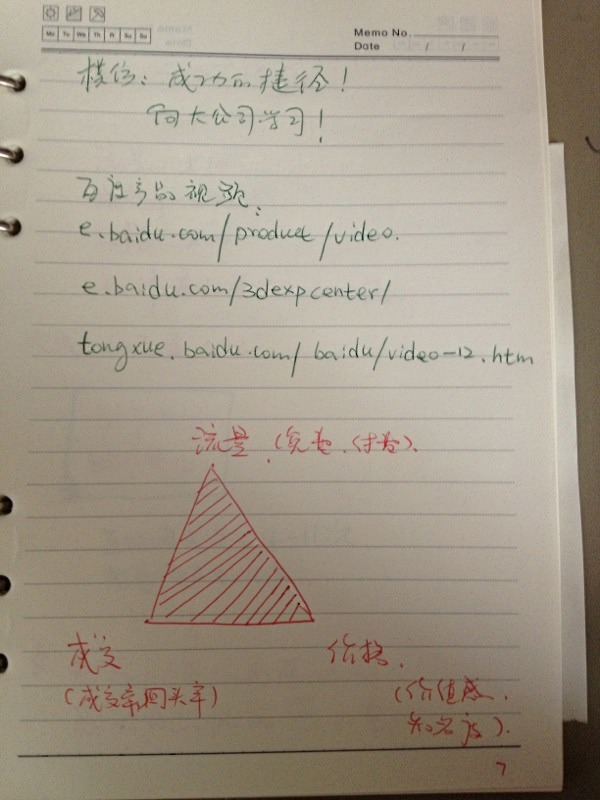 Mo Tu We Th Fr Sa Su
Memo No.
Date / /
模仿：成功的捷径！
向大公司学习！
百度产品视频：
e.baidu.com/product/video.
e.baidu.com/3dexpcenter/
tongxue.baidu.com/baidu/video-12.htm
流量（免费、付费）、
成交
（成交率回头率）
价格、
（价值感、
知名度）.
7